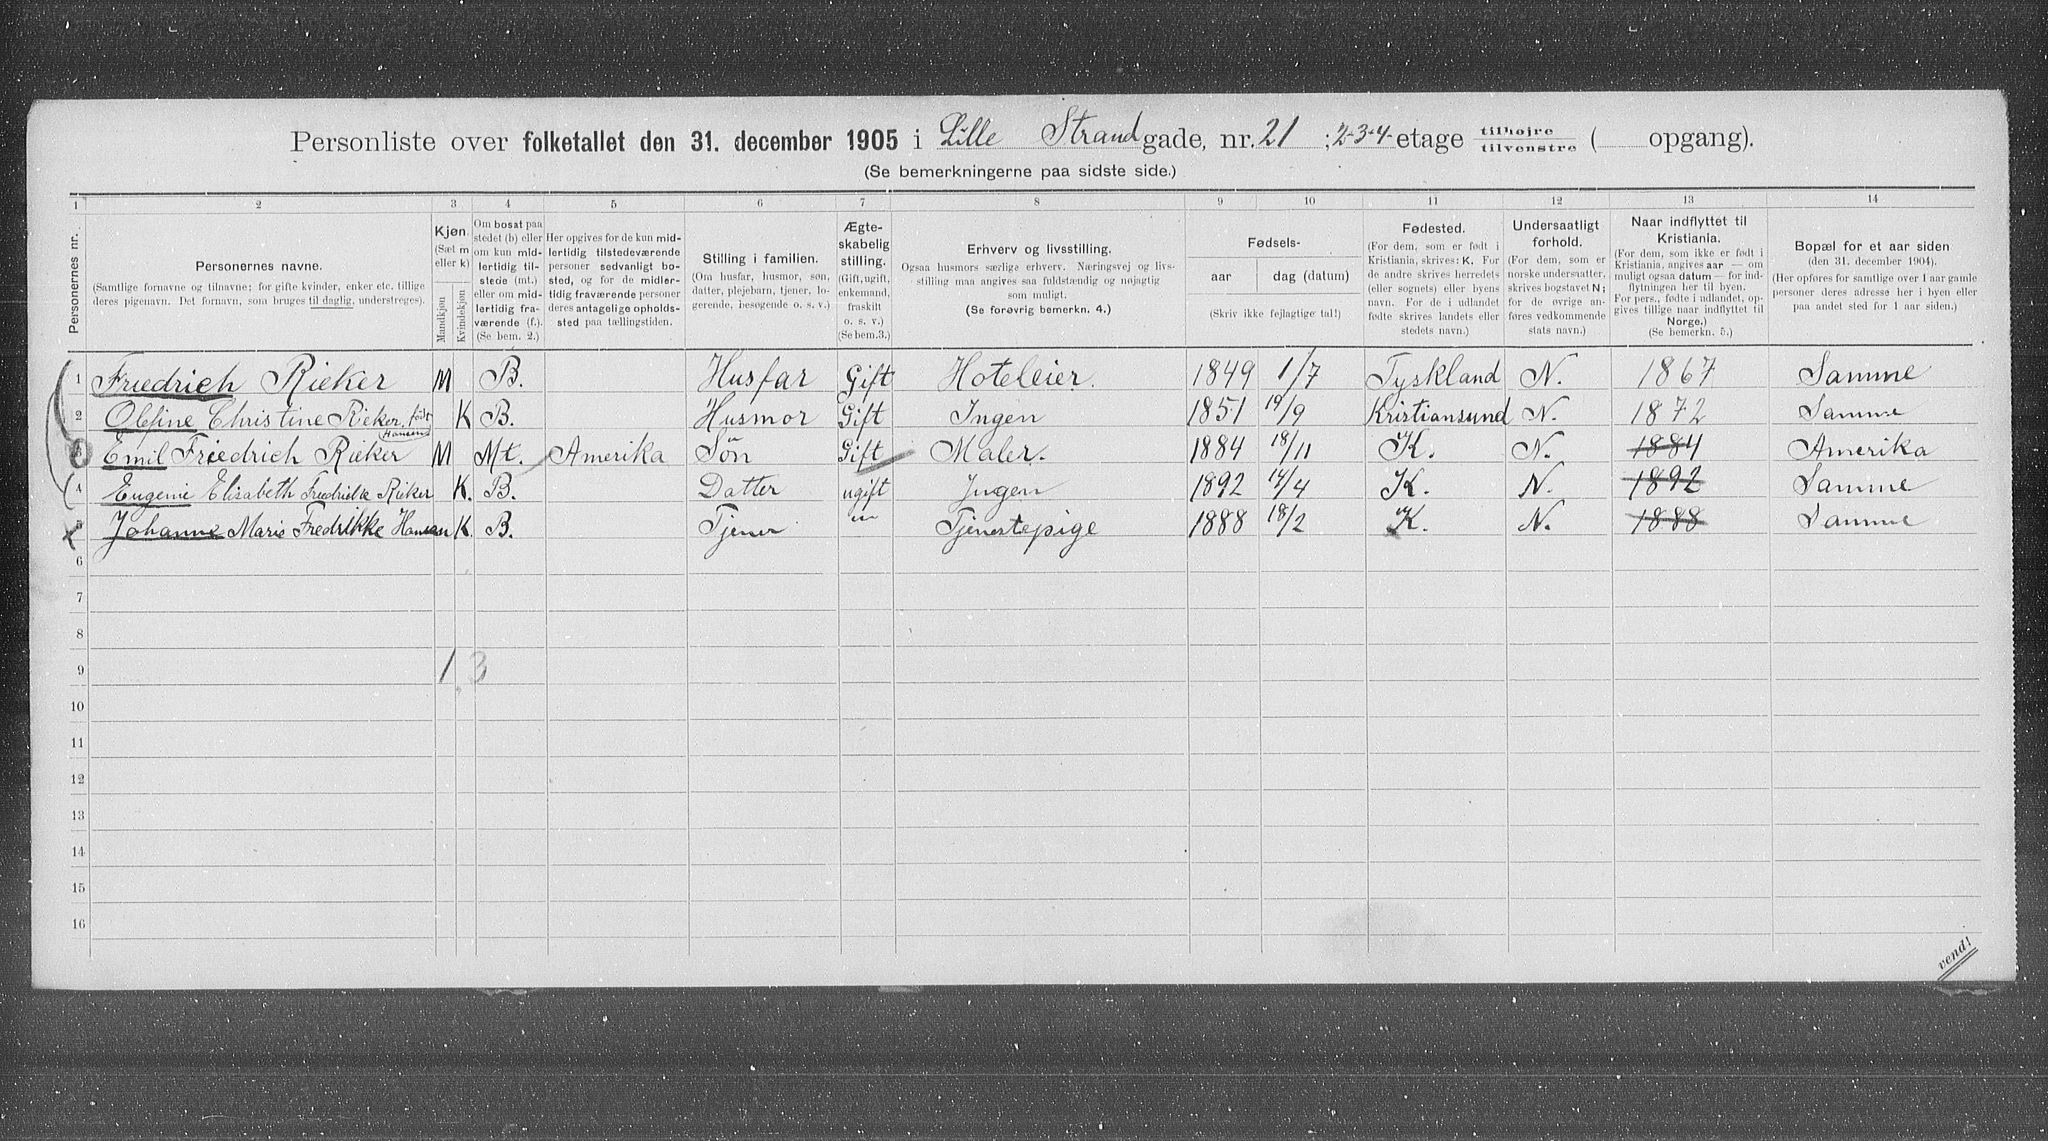 Personliste over folketallet den 31. december 1905 i Lille Strandgade, nr. 21 ; 2-3-4- etage tilhøjre tilvenstre ( opgang).
(Se bemerkningerne paa sidste side.)
1 2 3 4 5 6 7 8 9 10 11 12 13 14
Personernes nr.
Personernes navne.
(Samtlige fornavne og tilnavne; for gifte kvinder, enker etc. tillige deres pigenavn. Det fornavn, som bruges til daglig, understreges).
Kjøn.
(Sæt m eller k)
Mandkjøn
Kvindekjøn
Om bosat paa stedet (b) eller om kun midlertidig tilstede (mt.) eller om midlertidig fraværende (f.). (Se bem. 2.)
Her opgives for de kun midlertidig tilstedeværende personer sedvanlig bosted, og for de midlertidig fraværende personer deres antagelige opholdssted paa tællingstiden.
Stilling i familien.
(Om husfar, husmor, søn, datter, plejebarn, tjener, logerende, besøgende o. s. v.)
Ægteskabelig stilling.
(Gift, ugift, enkemand, fraskilt o. s. v.) (Se bem. 3.)
Erhverv og livsstilling.
Ogsaa husmors særlige erhverv. Næringsvej og livsstilling maa angives saa fuldstændig og nøjagtig som muligt.
(Se forøvrig bemerkn. 4.)
Fødsels-
aar
dag (datum)
(Skriv ikke fejlagtige tal!)
Fødested.
(For dem, som er født i Kristiania, skrives: K. For de andre skrives herredets (eller sognets) eller byens navn. For de i udlandet fødte skrives landets eller stedets navn.)
Undersaatligt forhold.
(For dem, som er norske undersaatter, skrives bogstavet N; for de øvrige anføres vedkommende stats navn.)
Naar indflyttet til Kristiania.
(For dem, som ikke er født i Kristiania, angives aar — om muligt ogsaa datum — for indflytningen her til byen. For pers., fødte i udlandet, opgives tillige naar indflyttet til Norge.)
(Se bemerkn. 5.)
Bopæl for et aar siden
(den 31. december 1904).
(Her opføres for samtlige over 1 aar gamle personer deres adresse her i byen eller paa andet sted for 1 aar siden.)
1 Friedrich Rieker M B. Husfar Gift Hoteleier. 1849 1/7 Tyskland N. 1867 Samme
2 Olefine Christine Rieker, født Hansen K B. Husmor Gift Ingen 1851 19/9 Kristiansund N. 1872 Samme
3 Emil Friedrich Rieker M Mt. Amerika Søn Gift Maler. 1884 18/11 K. N. 1884 Amerika
4 Eugenie Elisabeth Fredrikke Rieker K. B. Datter ugift Ingen 1892 14/4 K. N. 1892 Samme
5 Johanne Marie Fredrikke Hansen K. B. Tjener " Tjenestepige 1888 18/2 K. N. 1888 Samme
6
7
8
9 1 3
10
11
12
13
14
15
16
vend!